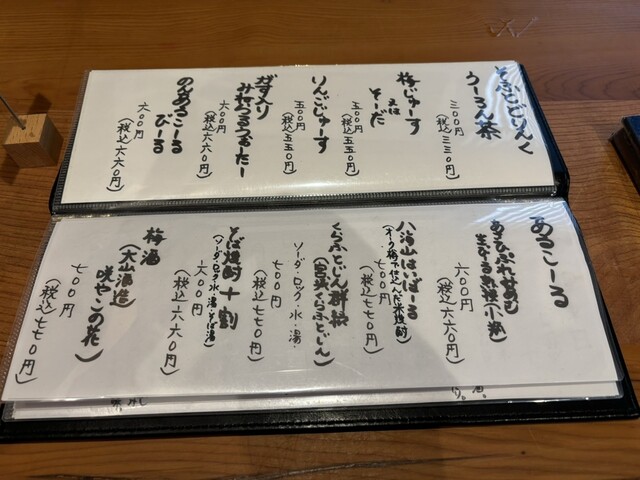 そふとどりんく
うーろん茶
三〇〇円
(税込三三〇円)
梅じゅーす
又は
そーだ
五〇〇円
(税込五五〇円)
りんごじゅーす
五〇〇円
(税込五五〇円)
ガす入り
みねらるうぉーたー
六〇〇円
(税込六六〇円)
のんあるこーる
びーる
六〇〇円
(税込六六〇円)
あるこーる
あさひぷれみあむ
生びーる
(小瓶)
六〇〇円
(税込六六〇円)
八海山はいぼーる
(オーク樽で仕込んだ米焼酎)
七〇〇円
(税込七七〇円)
くらふとじん群狼
(宮浜くらふとじん)
ソーダ・ロック・水・湯・
七〇〇円
(税込七七〇円)
そば焼酎十割
(ソーダ・ロック・水・湯・そば湯)
六〇〇円
(税込六六〇円)
梅酒
(大山酒造
咲やこの花)
七〇〇円
(税込七七〇円)